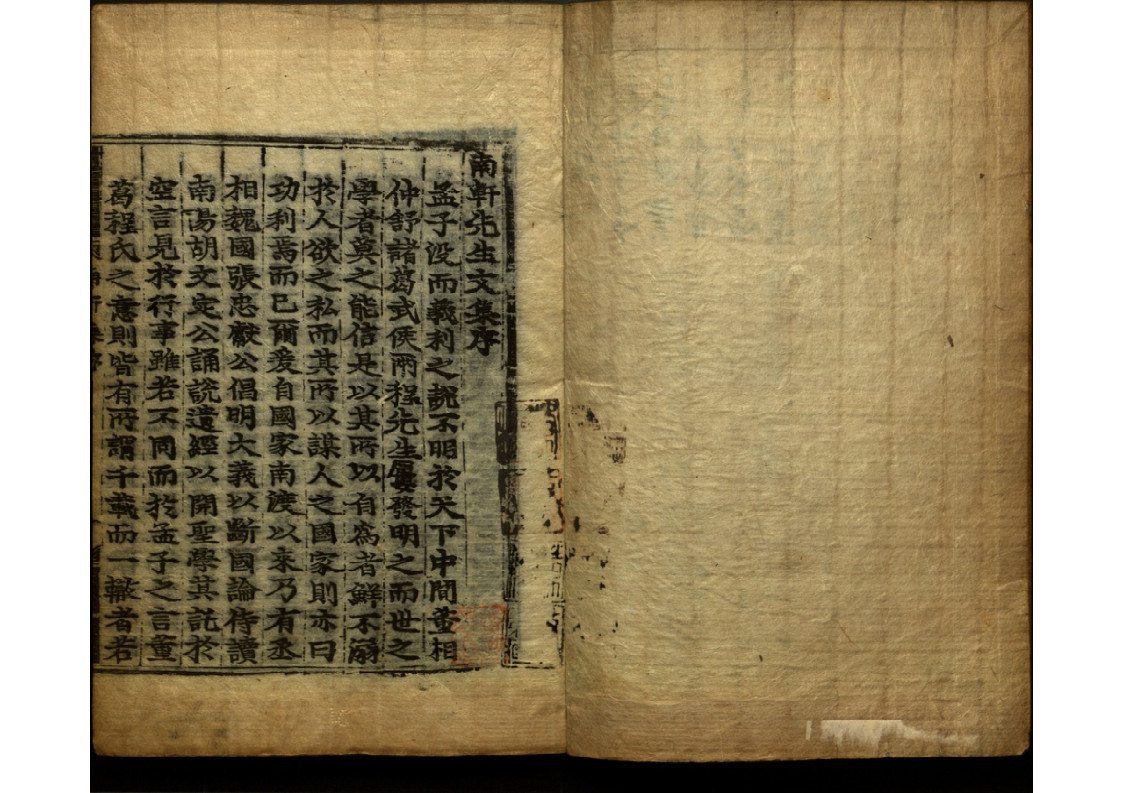 南軒先生文集序
孟子沒而義利之說不明於天下中間董相
仲舒諸葛武侯兩程先生屢發明之而世之
學者莫之能信是以其所以自爲者鮮不溺
於人欲之私而其所以謀人之國家則亦曰
功利焉而已爾爰自國家南渡以來乃有丞
相魏國張忠獻公倡明大義以斷國論侍讀
南陽胡文定公誦說遺經以開聖學其託於
空言見於行事雖若不同而於孟子之言董
葛程氏之意則皆有所謂千載而一轍者若